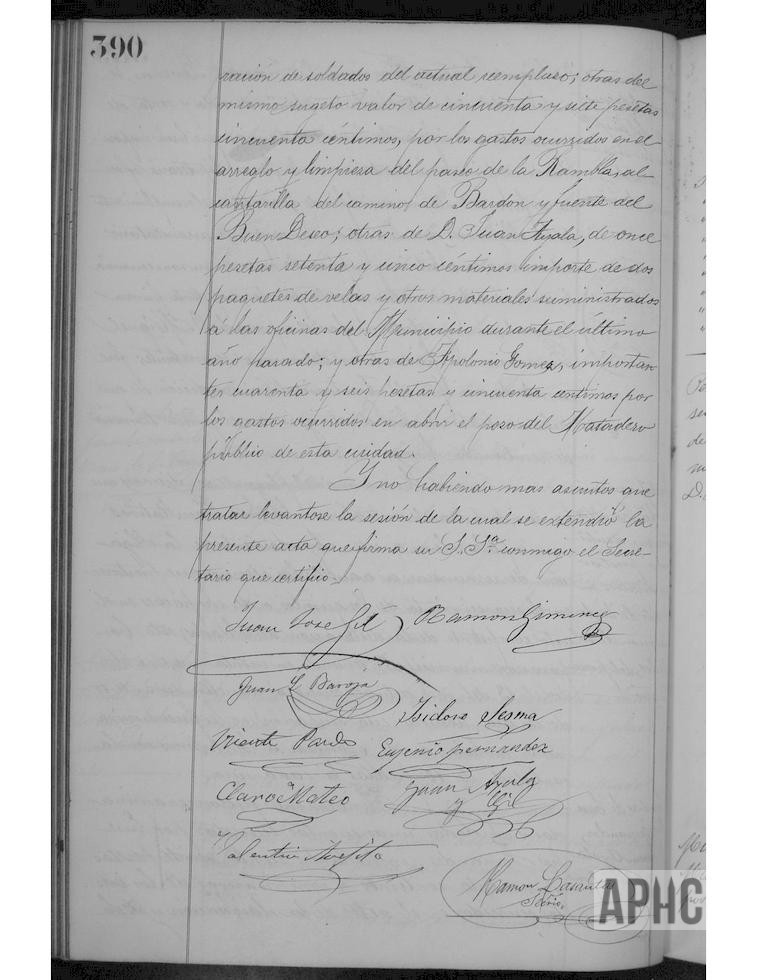 390
ración de soldados del actual reemplazo; otras del
mismo sugeto valor de cincuenta y siete pesetas
cincuenta céntimos, por los gastos ocurridos en el
arreglo y limpieza del paseo de la Rambla, al
cantarilla del camino de Bardon y fuente del
Buen Deseo; otras de D. Juan Ayala, de once
pesetas setenta y cinco céntimos importe de dos
paquetes de velas y otros materiales suministrados
á las oficinas del Municipio durante el último
año pasado; y otras de Apolonio Gomez, importan
tes cuarenta y seis pesetas y cincuenta centimos por
los gastos ocurridos en abrir el poso del Matadero
público de esta ciudad.
Y no habiendo mas asuntos que
tratar levantose la sesión de la cual se extendió la
presente acta que firma su S. Sª conmigo el Secre-
tario que certifico.
Juan José Gil Ramon Gimenez
Juan L Baroja
Isidoro Sesma
Vicente Pardo Eugenio Fernandez
Claro Mateo Juan Ayala
y Gil
Valentin
Ramon
Sŕio.
APHC